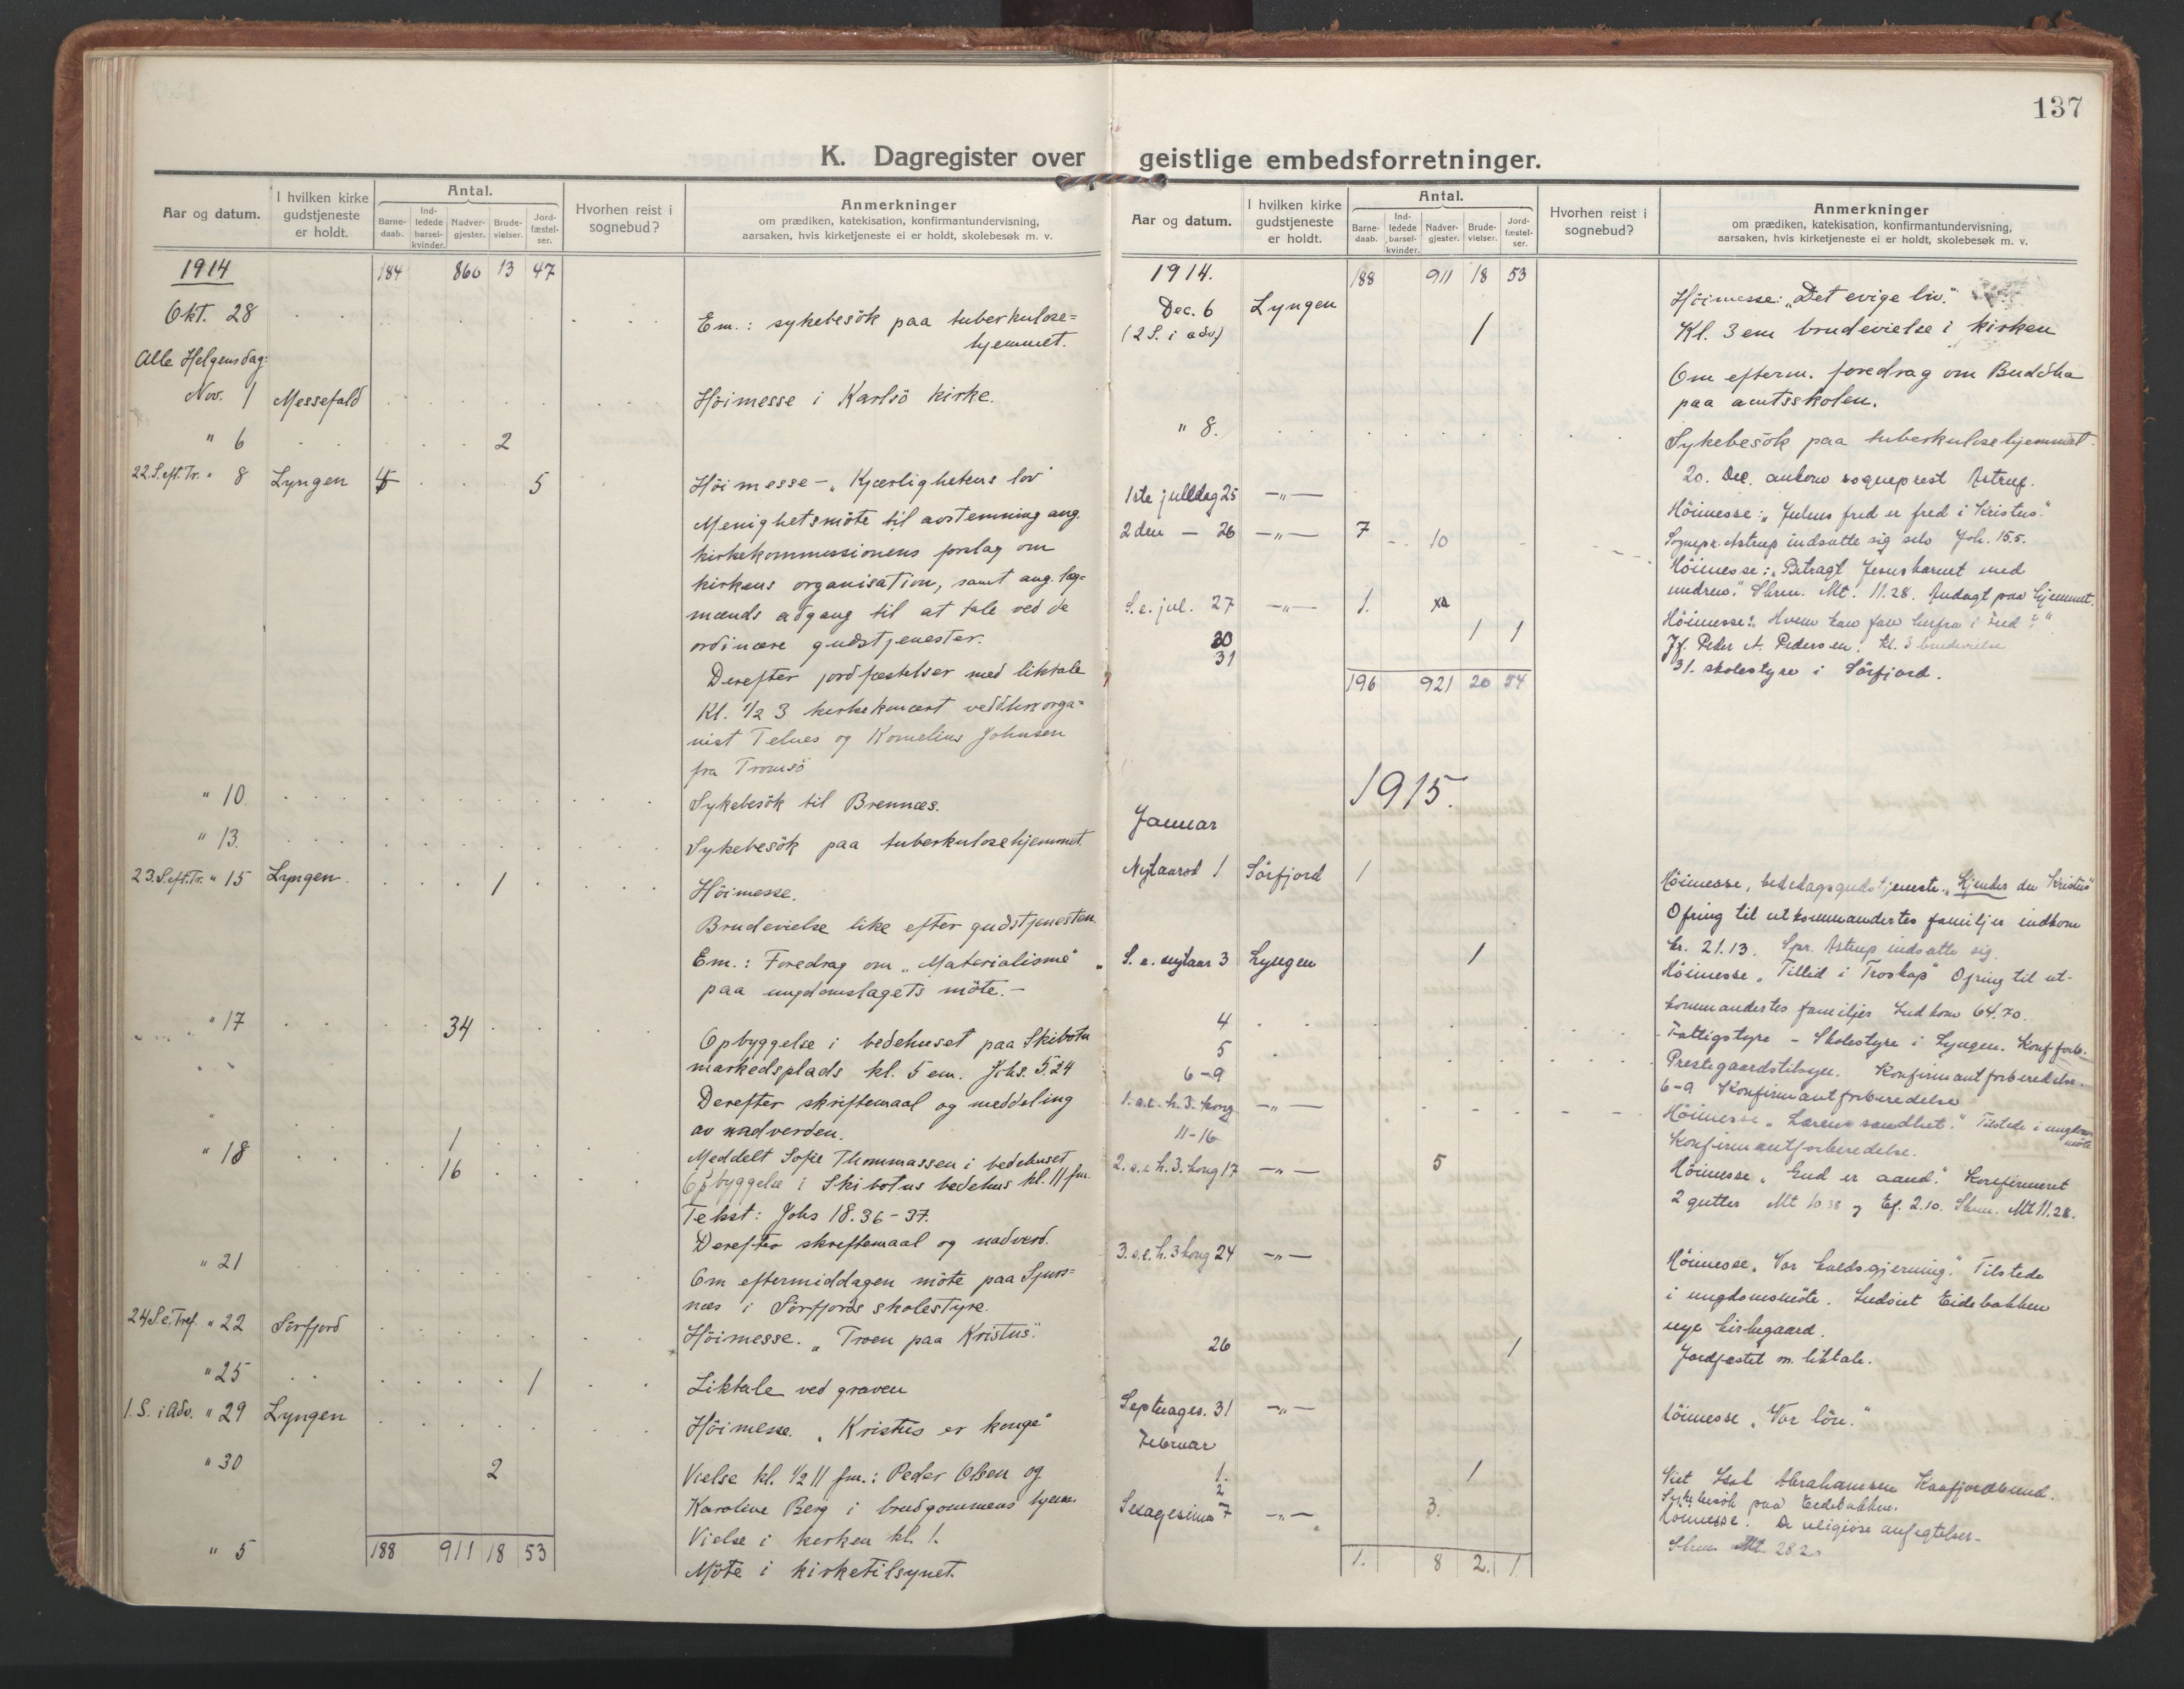 137
K. Dagregister over geistlige embedsforretninger.
Aar og datum.
I hvilken kirke gudstjeneste er holdt.
Antal.
Barne-daab.
Ind-ledede barsel-kvinder.
Nadver-gjester.
Brude-vielser.
Jord-fæstel-ser.
Hvorhen reist i sognebud?
Anmerkninger
om prædiken, katekisation, konfirmantundervisning,
aarsaken, hvis kirketjeneste ei er holdt, skolebesøk m. v.
1914 184 860 13 47
Okt. 28 Em.: sykebesök paa tuberkulose=
hjemmet.
Alle Helgensdag:
Nov. 1 Messefald Höimesse i Karlsö kirke.
" 6 2
22.S.eft.Tr. " 8 Lyngen 5 Höimesse - "Kjærlighetens lov"
Menighetsmöte til avstemning ang.
kirkekommissionens forslag om
kirkens organisation, samt ang. læg=
mænds adgang til at tale ved de
ordinære gudstjenester.
Derefter jordfæstelser med liktale
Kl. 1/2 3 kirkekoncert ved orga=
nist Telnes og Kornelius Johnsen
fra Tromsö
" 10 Sykebesök til Brennæs.
" 13. Sykebesök paa tuberkulosehjemmet.
23.S.eft.Tr. " 15 Lyngen 1 Höimesse.
Brudevielse like efter gudstjenesten.
Em.: Foredrag om "Materialisme"
paa ungdomslagets möte.-
" 17 34 Opbyggelse i bedehuset paa Skibotn
markedsplads kl. 5 em. Johs. 5.24
Derefter skriftemaal og meddeling
av nadverden.
" 18 1 Meddelt Sofie Thommassen i bedehuset
16 Opbyggelse i Skibotns bedehus kl. 11 fm.
Tekst: Johs 18.36-37.
Derefter skriftemaal og nadverd.
" 21 Om eftermiddagen möte paa Sjurs=
næs i Sörfjords skolestyre.
24 S.e.Tref. " 22 Sörfjord Höimesse. "Troen paa Kristus".
" 25 1 Liktale ved graven
1. S. i Adv. " 29 Lyngen Höimesse. "Kristus er konge"
" 30 2 Vielse kl. 1/2 11 fm.: Peder Olsen og
Karoline Berg i brudgommens hjem.
Vielse i kirken kl. 1.
" 5 188 911 18 53 Möte i kirketilsynet.
Aar og datum.
I hvilken kirke gudstjeneste er holdt.
Antal.
Barne-daab.
Ind-ledede barsel-kvinder.
Nadver-gjester.
Brude-vielser.
Jord-fæstel-ser.
Hvorhen reist i sognebud?
Anmerkninger
om prædiken, katekisation, konfirmantundervisning,
aarsaken, hvis kirketjeneste ei er holdt, skolebesøk m. v.
1914. 188 911 18 53
Dec. 6 Lyngen Höimesse: "Det evige liv."
(2 S. i adv) 1 Kl. 3 em brudevielse i kirken
Om efterm. foredrag om Buddha
paa amtsskolen.
" 8. Sykebesök paa tuberkulosehjemmet.
20. Dec. ankom sogneprest Astrup.
1ste juledag 25 -"- Höimesse: "Julens fred er fred i Kristus."
2den - 26 -"- 7 10 Sognepr. Astrup indsatte sig selv Joh. 15.5.
Höimesse: "Betragt Jesusbarnet med
undren." Skrm. Mt. 11.28. Andagt paa hjemmet.
S.e. jul. 27 -"- 1. Höimesse: "Hvem kan fare herfra i fred?"
30 1 1 Jf. Peder A. Pedersen. Kl. 3 brudevielse
31 31. skolestyre i Sörfjord.
196 921 20 54
1915.
Januar
Nytaarsd 1 Sörfjord 1 Höimesse, bededagsgudstjeneste. "Kjender du Kristus"
Ofring til utkommandertes familjer indkom
kr. 21.13. Spr. Astrup indsatte sig.
S. e. nytaar 3 Lyngen 1 Höimesse "Tillid i Troskap" Ofring til ut-
kommandertes familjer Indkom 64.70.
4 Fattigstyre - Skolestyre i Lyngen. Konf.forb.
5 Prestegaardstilsyn. Konfirmantforberedelse.
6-9 6-9 Konfirmantforberedelse
1. s.e. h. 3. kong -"- Höimesse "Lærens sandhet." Tilstede i ungdoms
möte
11-16 Konfirmantforberedelse.
2. s.e. h. 3. kong 17 -"- 5 Höimesse "Gud er aand". Konfirmeret
2 gutter Mt 10.38 og Ef. 2.10. Skrm. Mt 11.28.
3. s.e. h. 3 kong 24 -"- Höimesse "Vor kaldsgjerning." Tilstede
i ungdomsmöte. Indviet Eidebakken
nye kirkegaard.
26 1 Jordfæstet m. liktale.
Septuages. 31 -"- Höimesse "Vor lön."
Februar
1. 1 Viet Isak Abrahamsen Kaafjordbund.
2 Sykebesök paa Eidebakken.
Sexagesima 7 -"- 3. Höimesse. De religiöse anfegtelser.
Skrm. Mt. 28.20
1. 8 2. 1